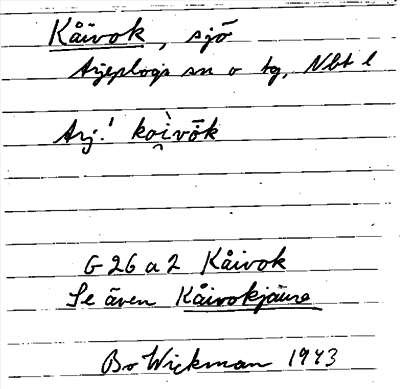 Kåivok, sjö
Arjeplogs sn o tg, Nbt l
Arj.! koì̯vōk
G 26 a 2 Kåivok
Se även Kåivokjaure
Bo Wickman 1943